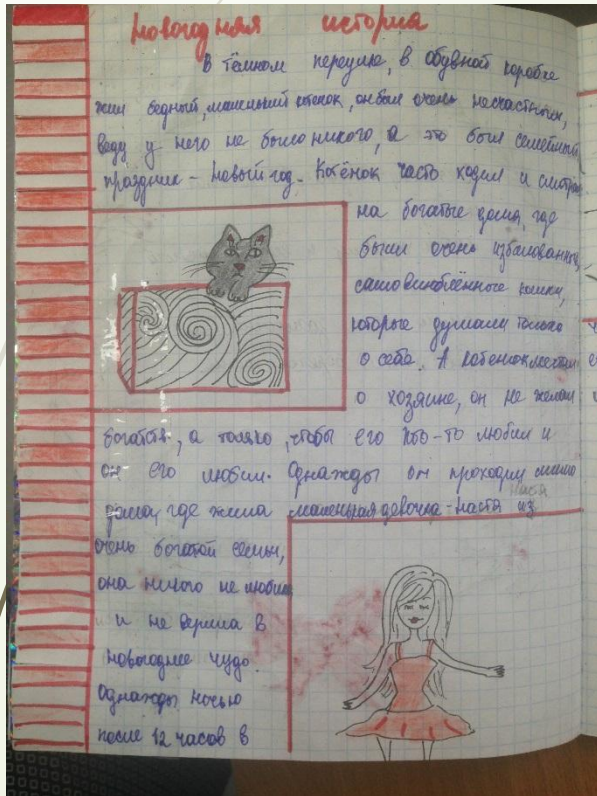 Новогодняя история
В тёмном переулке, в обувной коробке
жил бедный, маленький котёнок, он был очень несчастным,
ведь у него не было никого, а это был семейный
праздник - Новый год. Котёнок часто ходил и смотрел
на богатые дома, где
были очень избалованные,
самовлюблённые кошки,
которые думали только
о себе. А котёнок мечтал
о хозяине, он не желал
богатств, а только, чтобы его кто-то любил и
он его любил. Однажды он проходил мимо
дома, где жила маленькая девочка - Настя из
очень богатой семьи,
она никого не любила
и не верила в
новогоднее чудо.
Однажды ночью
после 12 часов в